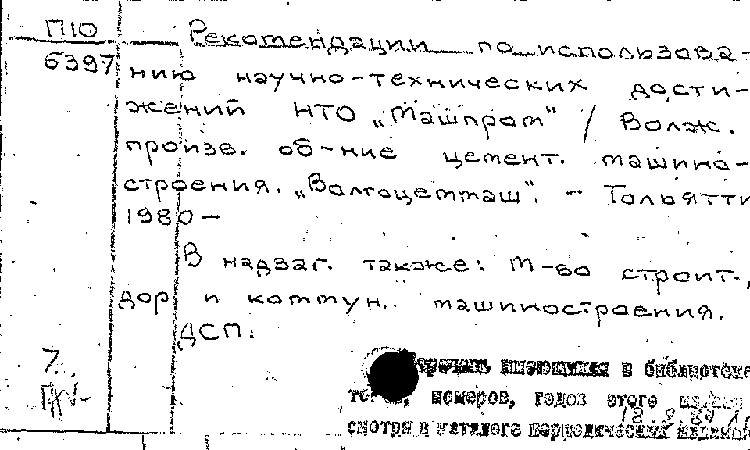 П10
6397
Рекомендации по использова-
нию научно-технических дости-
жений НТО „Машпром" / Волж.
произв. об-ние цемент. машино-
строения. „Волгоцеммаш". - Тольятти
1980 -
В надзаг. также: М-во строит.,
дор и коммун. машиностроения.
ДСП.
7.
имеющихся в библиотеке
номеров, годов этого
смотри в каталоге периодических изданий